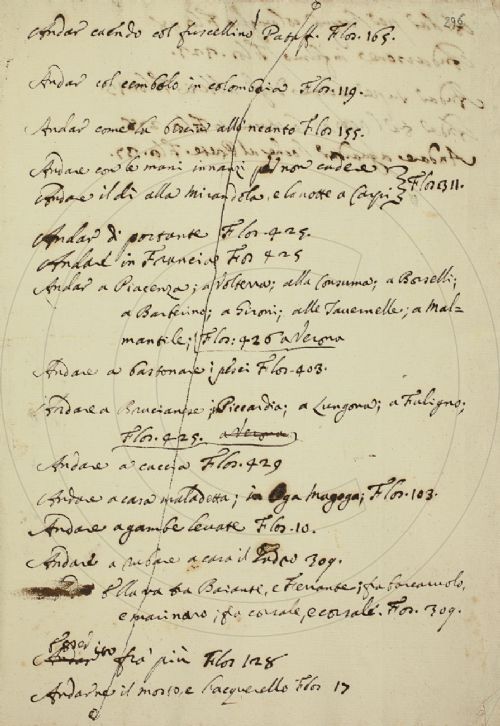 296
Andar caendo col fuscellino Pataff. Flor. 165.
Andar col cembolo in colombaia Flor. 119.
Andar come la biscia all'incanto Flor 155.
Andare con le mani innanzi per non cadere
Andare il dì alla Mirandola, e la notte a Carpi Flor 311.
Andar di portante Flor 425.
Andare in Francia Flor 425
Andar a Piacenza; a Volterra; alla Consuma; a Borselli;
a Barberino; a Gironi; alle Tavernelle; a Mal-
mantile; Flor: 426 a Verona
Andare a bastonare i pesci Flor. 403.
Andare a Brucianese; Piccardia; a Lungona; a Fuligno;
Flor. 425. a Verona
Andare a caccia Flor. 429
Andare a casa maladetta; in Oga Magoga; Flor. 103.
Andare a gambe levate Flor. 10.
Andare a rubare a casa il ladro 309.
Ella va fra Baiante, e Ferrante; fra barcaruolo,
e marinaro; fra corsale, e corsale. Flor. 309.
Andar fra' più Flor 128
Andarne il morso, e l'acquerello Flor 17